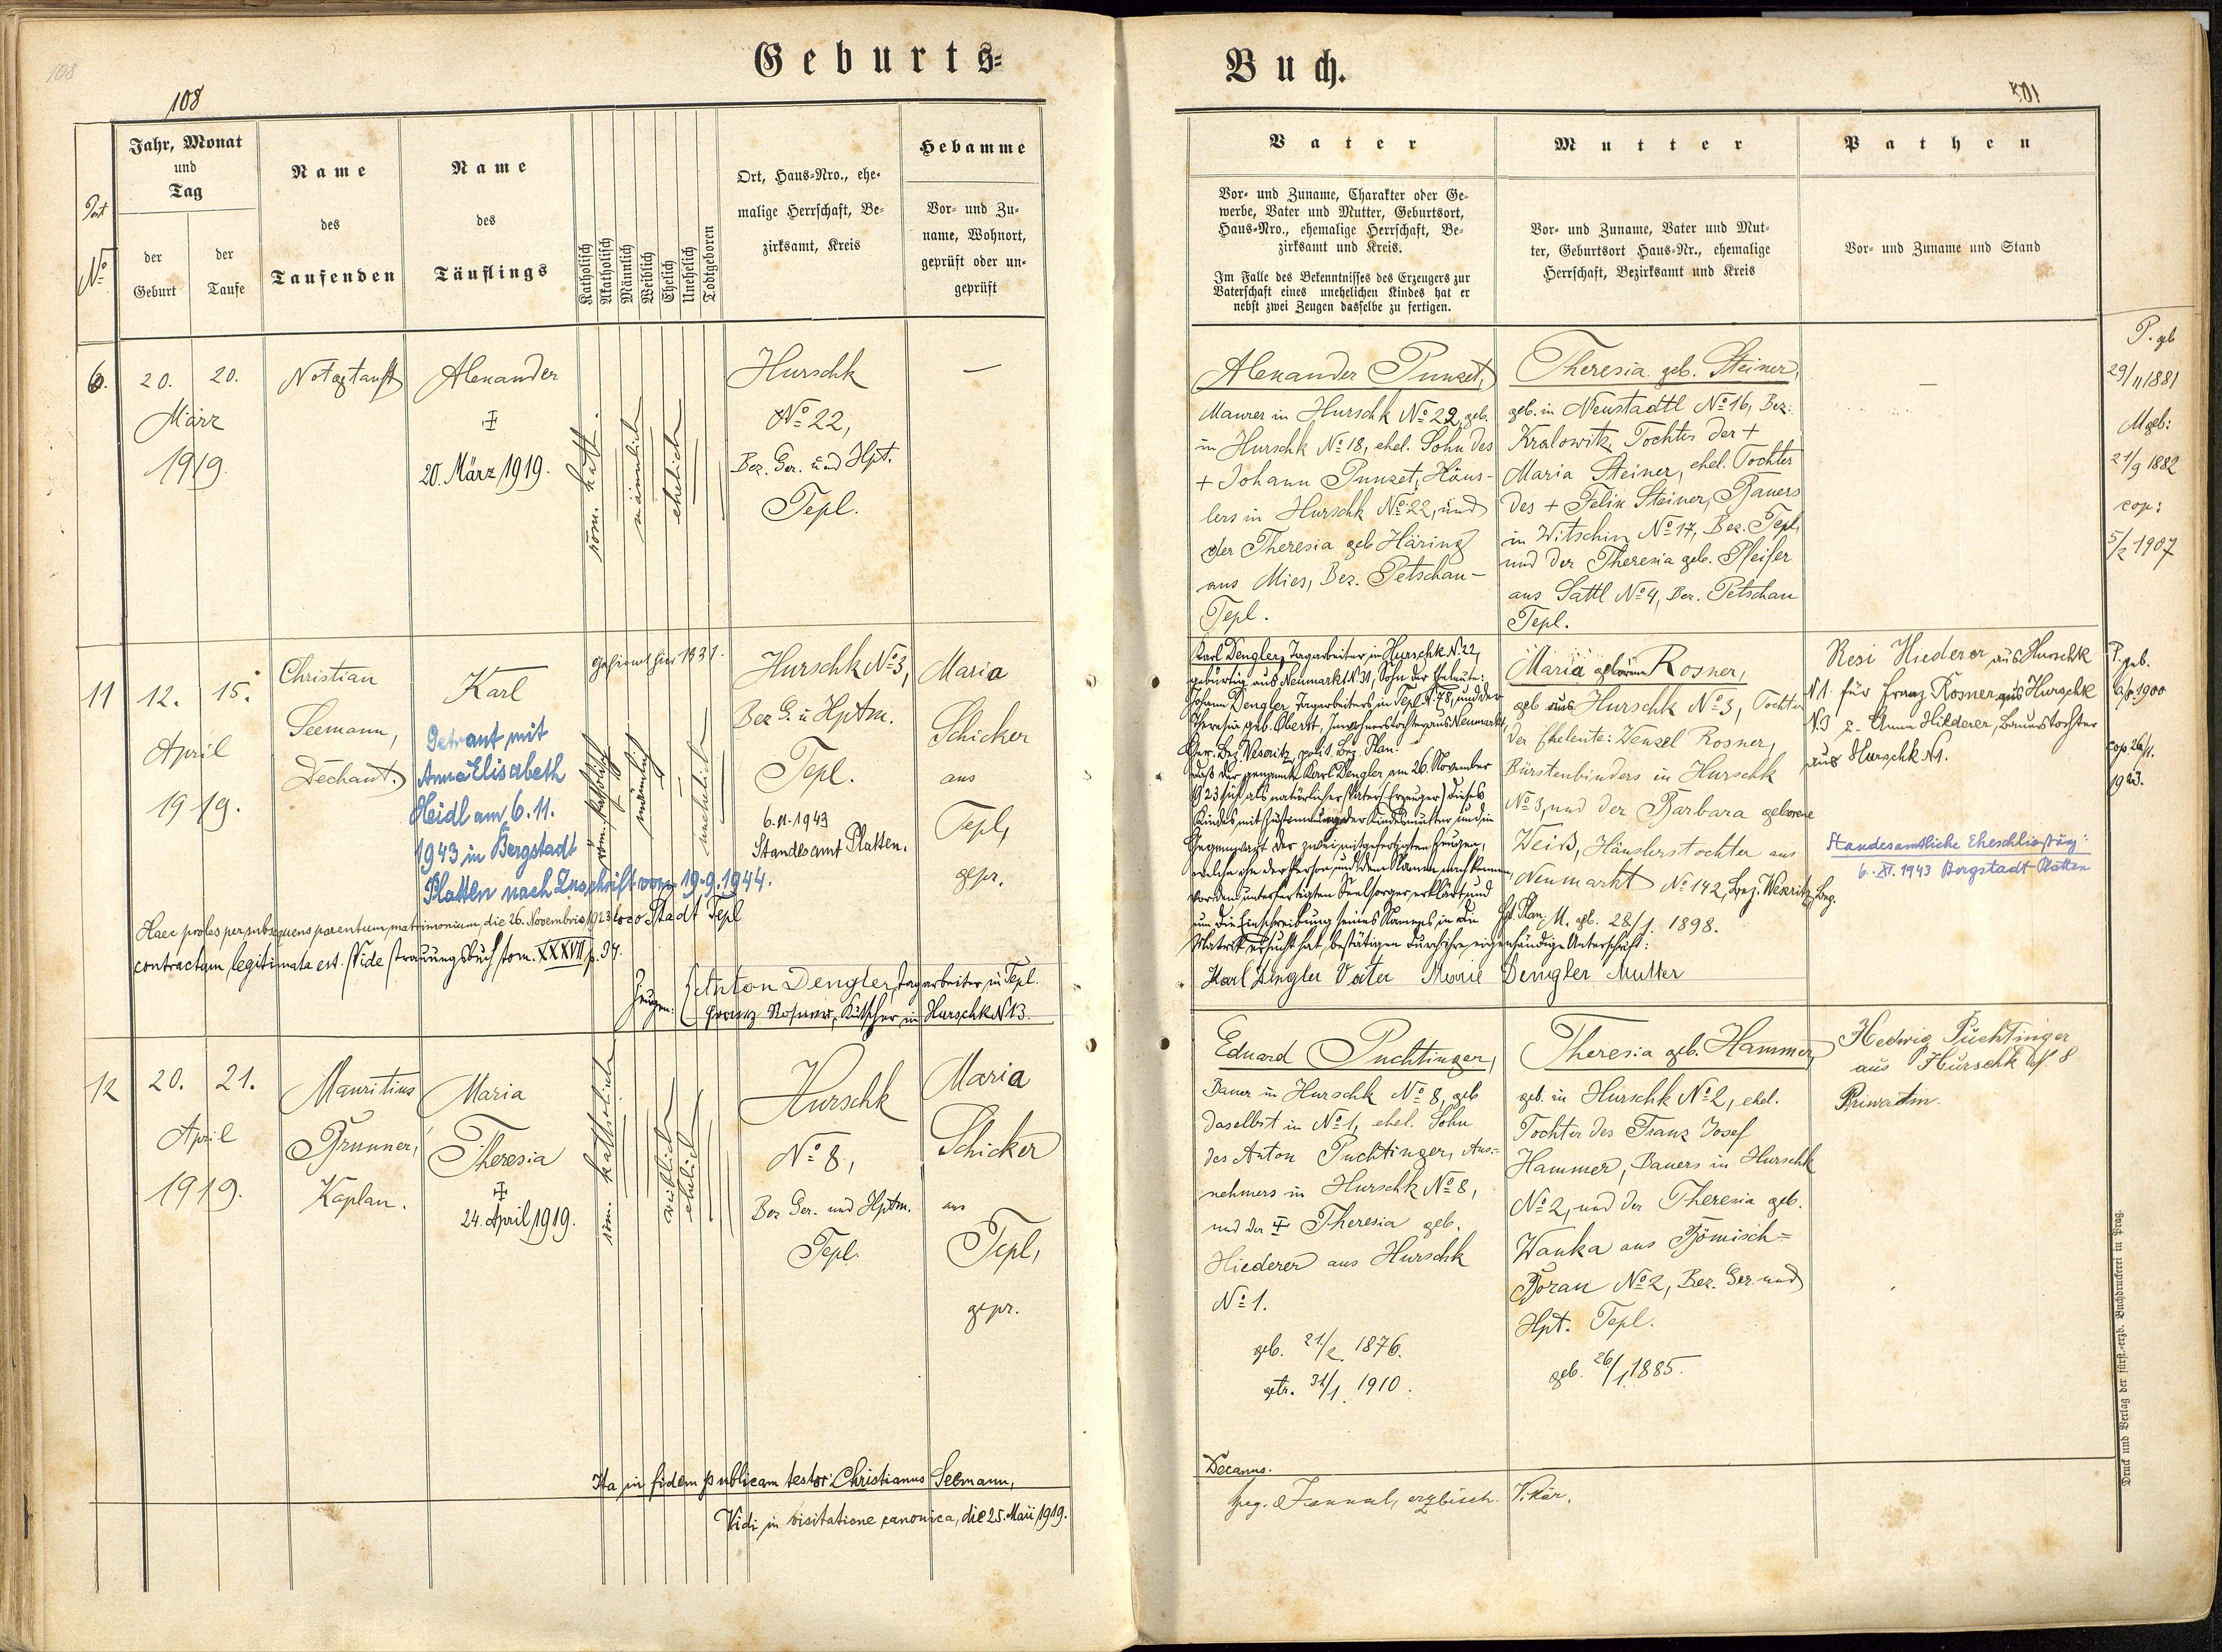 Geburts=
108
108
Post
No
Jahr, Monat
und
Tag
der
Geburt
der
Taufe
Name
des
Taufenden
Name
des
Täuflings
Katholisch
Akatholisch
Männlich
Weiblich
Ehelich
Unehelich
Todtgeboren
Ort, Haus=Nro., ehe-
malige Herrschaft, Be-
zirksamt, Kreis
Hebamme
Vor- und Zu-
name, Wohnort,
geprüft oder un-
geprüft
6.
20.
20.
März
1919.
Alexander
20. März 1919.
röm. kath.
männlich
ehelich
Hurschk
No 22,
Bez. Ger. und Hpt.
Tepl.
—
11
12.
15.
April
1919.
Christian
Seemann,
Dechant.
Karl
Getraut mit
Anna Elisabeth
Heidl am 6.11.
1943 in Bergstadt
Platten nach Zuschrift vom 19.9.1944.
röm. katholisch
männlich
unehelich
Hurschk No 3,
Bez G. u Hptm.
Tepl.
6.11.1943
Standesamt Platten.
Maria
Schicker
aus
Tepl,
gepr.
Haec proles per subsequens parentum matrimonium die 26. Novembris 1923 loco Stadt Tepl
contractum legitimata est. Vide Trauungsbuch tom. XXXVII p. 34.
Zeugen:
Anton Dengler, Tagarbeiter in Tepl.
Franz Rosner, Kutscher in Hurschk N 13.
12
20.
21.
April
1919.
Mauritius
Brunner,
Kaplan.
Maria
Theresia
24. April 1919.
röm. katholisch
weiblich
ehelich
Hurschk
No 8,
Bez Ger. und Hptm.
Tepl.
Maria
Schicker
aus
Tepl,
gepr.
Ita in fidem publicam testor Christianus Seemann,
Vidi in visitatione canonica, die 25. Maii 1919.
Buch.
Vater
Vor- und Zuname, Charakter oder Ge-
werbe, Vater und Mutter, Geburtsort,
Haus=Nro., ehemalige Herrschaft, Be-
zirksamt und Kreis.
Im Falle des Bekenntnisses des Erzeugers zur
Vaterschaft eines unehelichen Kindes hat er
nebst zwei Zeugen dasselbe zu fertigen.
Mutter
Vor- und Zuname, Vater und Mut-
ter, Geburtsort Haus=Nr., ehemalige
Herrschaft, Bezirksamt und Kreis
Pathen
Vor- und Zuname und Stand
Alexander Punzet,
Maurer in Hurschk No 22, geb.
in Hurschk No 18, ehel. Sohn des
+ Johann Punzet, Häus-
lers in Hurschk No 22, und
der Theresia geb Häring
aus Mies, Bez. Petschau-
Tepl.
Theresia geb. Steiner,
geb. in Neustadtl No 16, Bez.
Kralowitz, Tochter der +
Maria Steiner, ehel. Tochter
des + Felix Steiner, Bauers
in Witschin No 17, Bez. Tepl,
und der Theresia geb. Pfeifer
aus Sattl No 4, Bez. Petschau
Tepl.
—
P. geb
29/11 1881
M geb:
21/9 1882
cop:
5/2 1907
Karl Dengler, Tagarbeiter in Hurschk N. 22,
gebürtig aus Neumarkt N 31, Sohn der Eheleute:
Johann Dengler, Tagarbeiters in Tepl N 78, und der
Theresia geb. Inwohnerstochter aus Neumarkt,
Ger. Bez. Weseritz, polit. Bez. Plan.
Daß der genannte Karl Dengler am 26. November
1923 sich als natürlicher Vater (Erzeuger) dieses
Kindes mit Zustimmung der Kindesmutter und in
Gegenwart der zwei mitgefertigten Zeugen,
welche ihn der Person und dem Namen nach kennen,
vor dem unterfertigten Seelsorger erklärt und
um die Einschreibung seines Namens in die
Matrik ersucht hat, bestätigen durch ihre eigenhändige Unterschrift:
Karl Dengler Vater Marie Dengler Mutter
Maria geborene Rosner,
geb aus Hurschk No 3, Tochter
der Eheleute: Wenzel Rosner,
Bürstenbinders in Hurschk
No 3, und der Barbara geborene
Weiß, Häuslerstochter aus
Neumarkt No 142, Bez. Weseritz, Bez.
Hpt. Plan, M. gb. 28/1. 1898.
Resi Hiederer aus Hurschk
N 1. für Franz Rosner aus Hurschk
N. 3 u. Anna Hiederer, Bauerstochter
aus Hurschk N 1.
Standesamtliche Eheschließung:
6. XI. 1943 Bergstadt Platten
P. geb.
1900
cop 26/11.
1923.
Eduard Puchtinger,
Bauer in Hurschk No 8, geb
daselbst in No 1, ehel. Sohn
des Anton Puchtinger, Aus=
nehmers in Hurschk No 8,
und der Theresia geb.
Hiederer aus Hurschk
No 1.
geb. 21/2. 1876.
getr. 31/1. 1910.
Theresia geb. Hammer,
geb. in Hurschk No 2, ehel.
Tochter des Franz Josef
Hammer, Bauers in Hurschk
No 2, und der Theresia geb.
Wanka aus Römisch=
Boran No 2, Bez. Ger. und
Hpt. Tepl.
geb. 26/1. 1885.
Hedwig Püchtinger
aus Hurschk N. 8
Privatin.
Decanus.
erzbisch. Vikär.
Druck und Verlag der fürst.-erzb. Buchdruckerei in Prag.